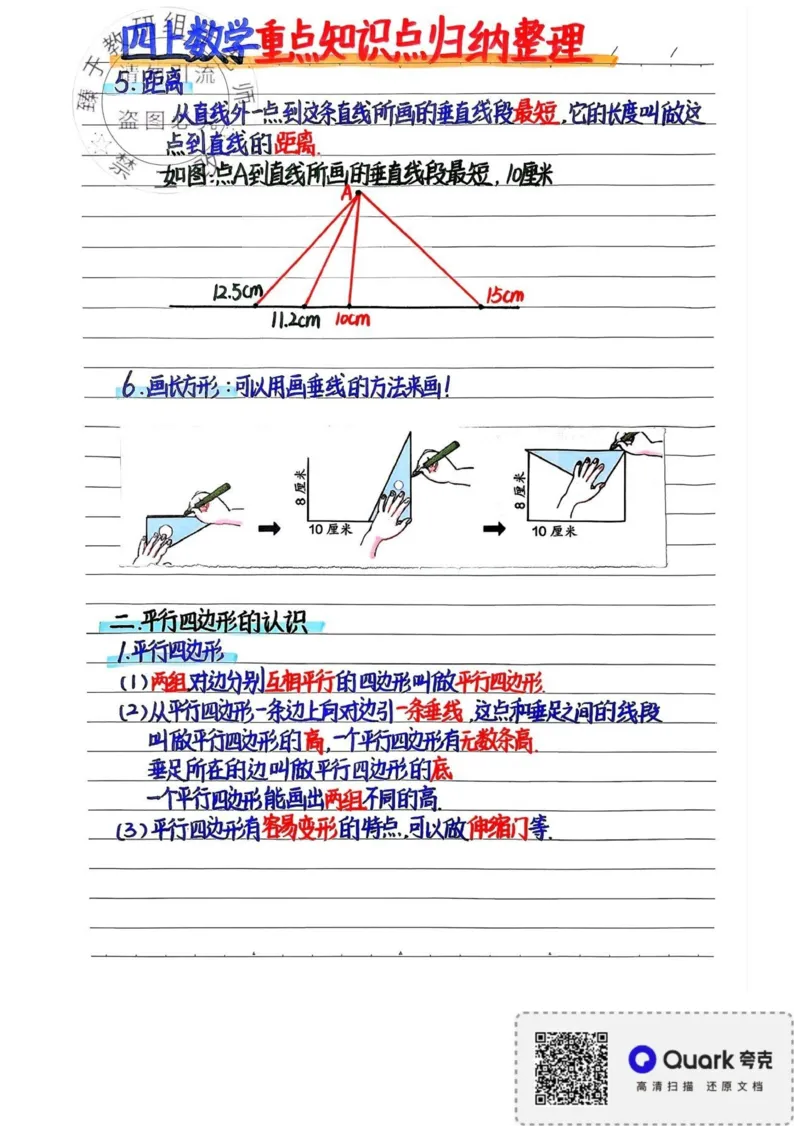 四上数学重点知识点归纳整理
5.距离
从直线外一点到这条直线所画的垂直线段最短,它的长度叫做这
点到直线的距离.
如图:点A到直线所画的垂直线段最短,10厘米
A
12.5cm
15cm
11.2cm 10cm
6.画长方形:可以用画垂线的方法来画!
8厘米
10厘米
8厘米
10厘米
二.平行四边形的认识
1.平行四边形
(1)两组对边分别互相平行的四边形叫做平行四边形.
(2)从平行四边形一条边上向对边引一条垂线,这点和垂足之间的线段
叫做平行四边形的高,一个平行四边形有无数条高.
垂足所在的边叫做平行四边形的底
一个平行四边形能画出两组不同的高.
(3)平行四边形有容易变形的特点,可以做伸缩门等.
Quark夸克
高清扫描 还原文档